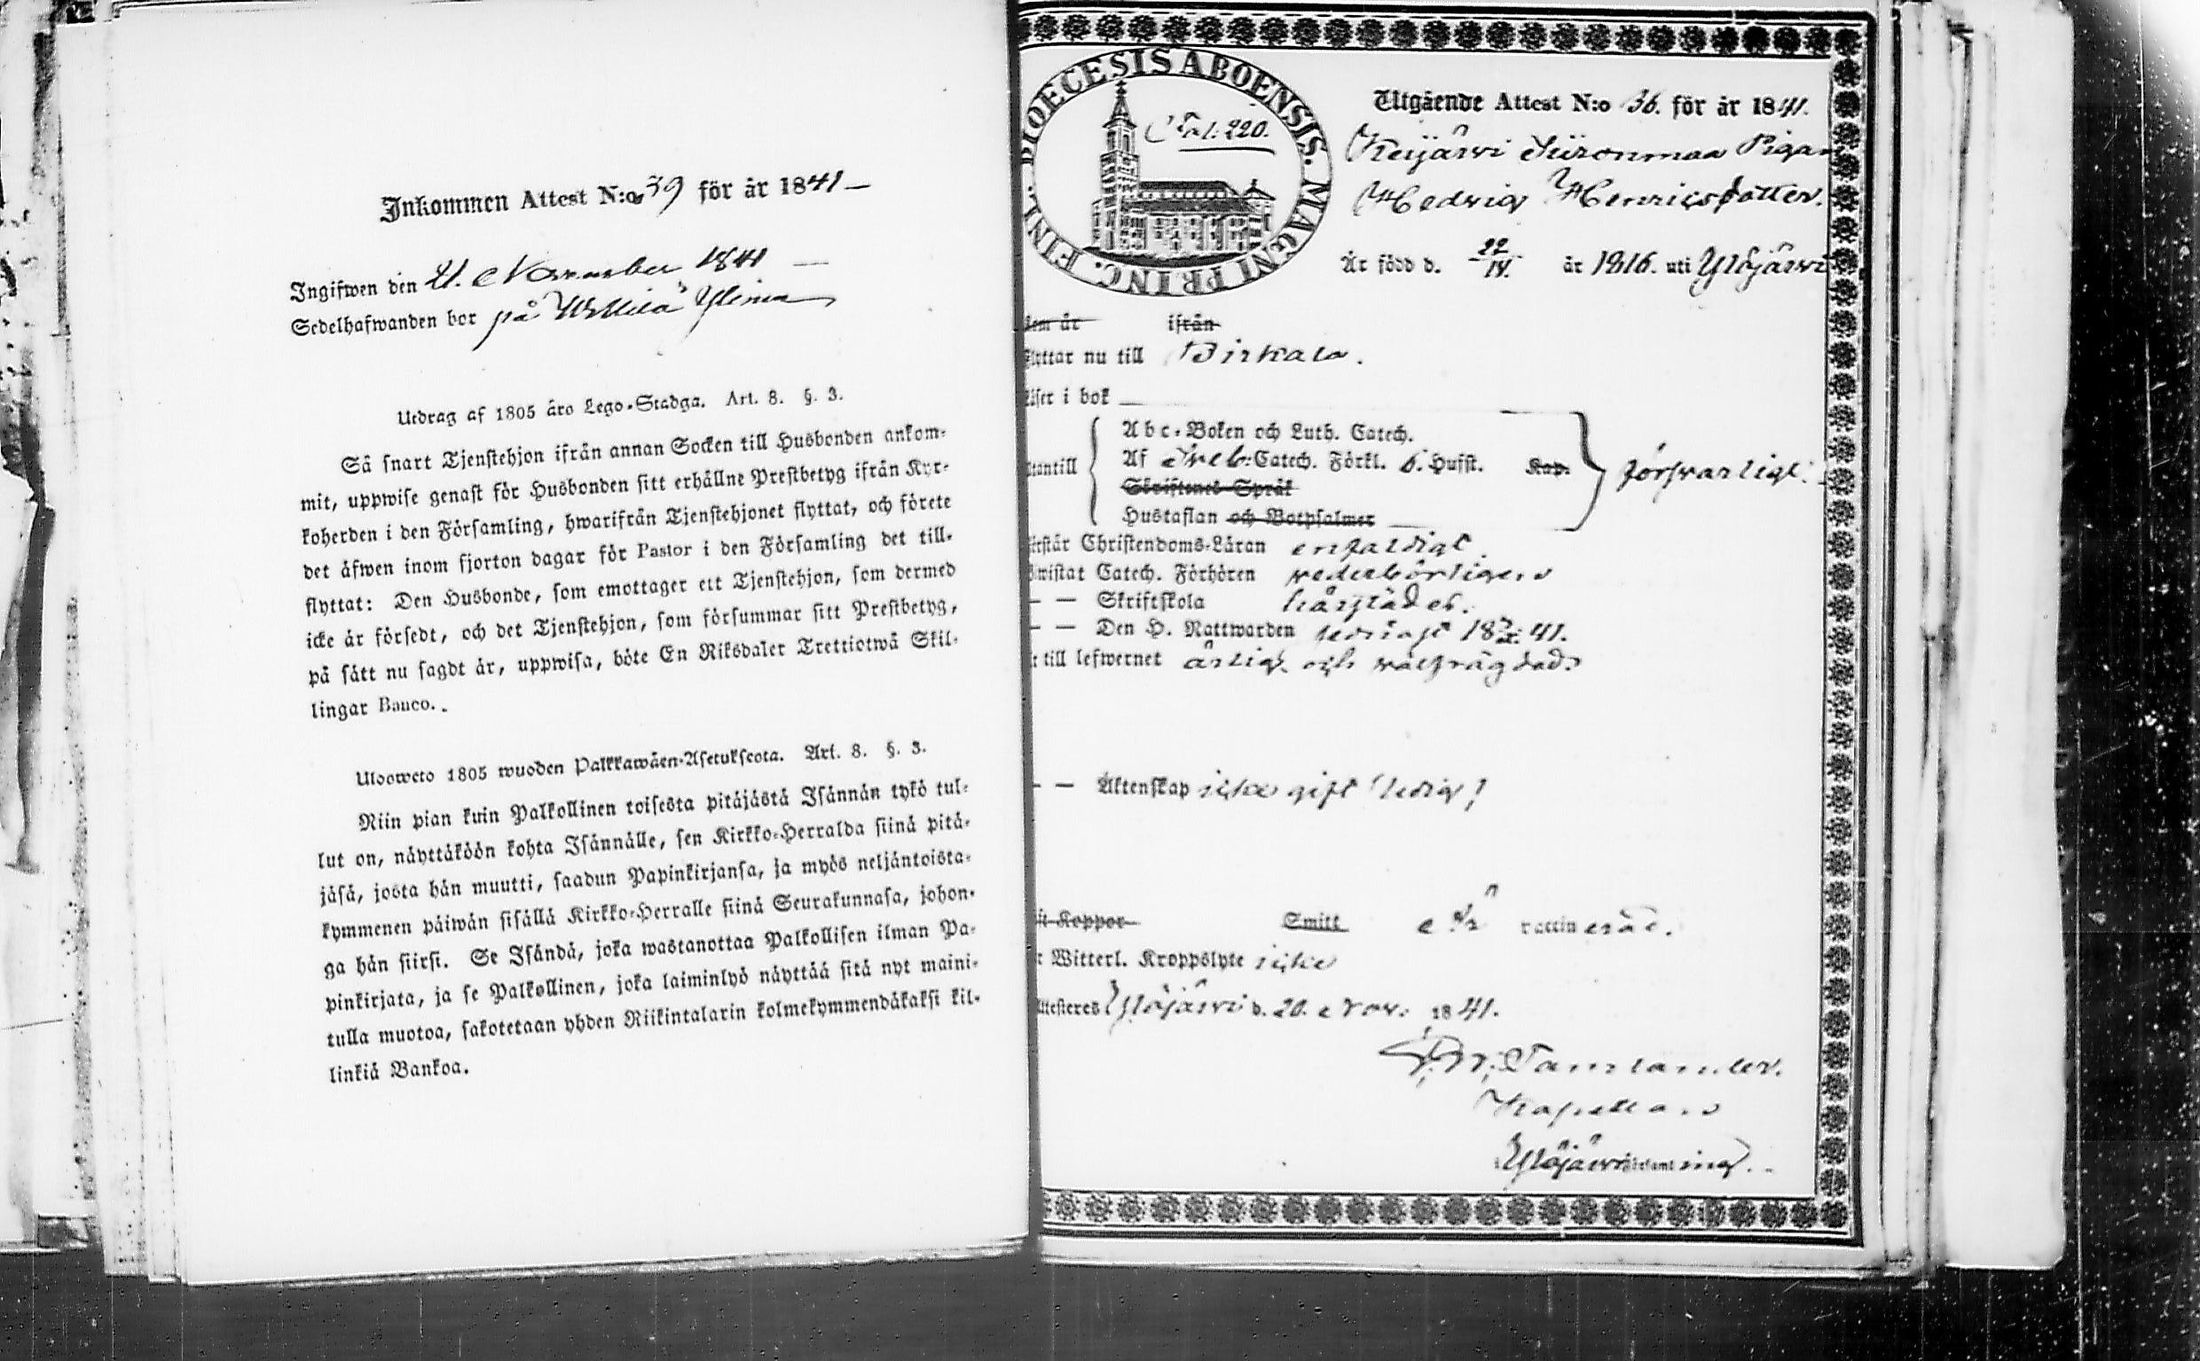 Inkommen Attest N:o 39 för år 1841 —
Ingifwen den 21. November 1841 —
Sedelhafwanden bor på
Utdrag af 1805 års Lego-Stadga. Art. 8. §. 3.
Så snart Tjenstehjon ifrån annan Socken till Husbonden ankom-
mit, uppwise genast för Husbonden sitt erhållne Prestbetyg ifrån Kyr-
koherden i den Församling, hwarifrån Tjenstehjonet flyttat, och förete
det äfwen inom fjorton dagar för Pastor i den Församling det till-
flyttat: Den Husbonde, som emottager ett Tjenstehjon, som dermed
icke är försedt, och det Tjenstehjon, som försummar sitt Prestbetyg,
på sätt nu sagdt är, uppwisa, böte En Riksdaler Trettiotwå Skil-
lingar Banco.
Ulosweto 1805 wuoden Palkkawäen-Asetuksesta. Art. 8. §. 3.
Niin pian kuin Palkollinen toisesta pitäjästä Isännän tykö tul-
lut on, näyttäköön kohta Isännälle, sen Kirkko-Herralda siinä pitä-
jäsä, josta hän muutti, saadun Papinkirjansa, ja myös neljäntoista-
kymmenen päiwän sisällä Kirkko-Herralle siinä Seurakunnasa, johon-
ga hän siirsi. Se Isändä, joka wastanottaa Palkollisen ilman Pa-
pinkirjata, ja se Palkollinen, joka laiminlyö näyttää sitä nyt maini-
tulla muotoa, sakotetaan yhden Riikintalarin kolmekymmendäkaksi kil-
linkiä Bankoa.
DIOECESIS ABOENSIS. MAGNI PRINC. FINL.
Fol. 220.
Utgående Attest N:o 36. för år 1841.
Keijärvi Pigan
Hedvig Henricsdotter.
Är född d. år 1816. uti Ylöjärvi
Som är ifrån
Flyttar nu till Birkala.
Läser i bok
Abc-Boken och Luth. Catech.
Utantill Af Sveb. Catech. Förkl. 6. Husst. Kap. försvarligt.
Skriftenes Språk
Hustaflan och Botpsalmer
Förstår Christendoms-Läran enfaldigt.
Bewistat Catech. Förhören vederbörligen
— — Skriftskola härstädes.
— — Den H. Nattwarden sednast 41.
Är till lefwernet ärlig och välfrägdad.
— — Äktenskap icke gift (ledig)
Haft Koppor Smitt vaccinerad.
Har Witterl. Kroppslyte icke
Attesteres Ylöjärvi d. 20. Nov. 1841.
Kapellan
Ylöjärvi Församling.